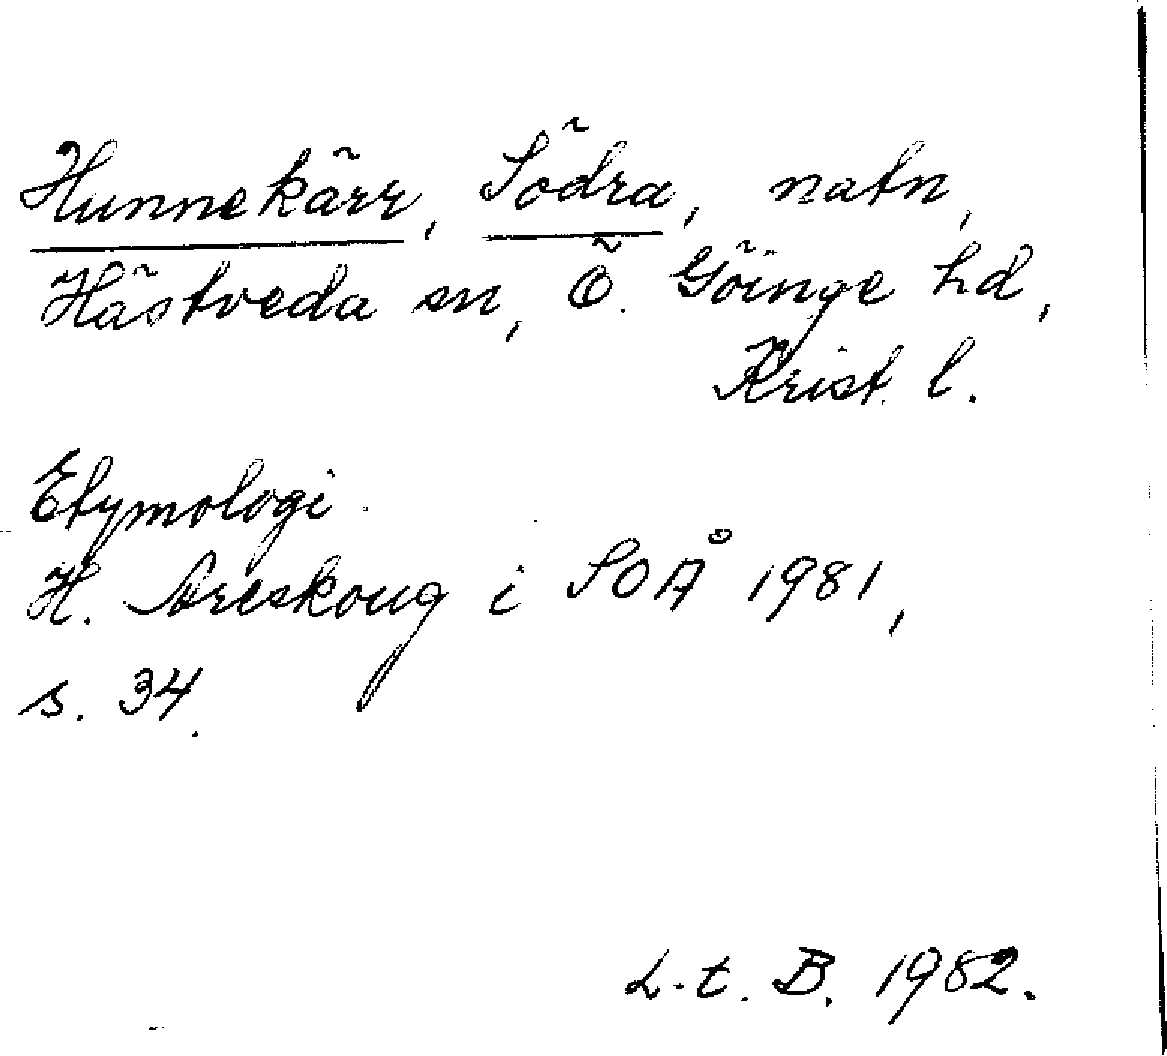 Hunnekärr, Södra, natn,
Hästveda sn, Ö. Göinge hd,
Krist. l.
Etymologi.
H. Areskoug i SOÅ 1981,
s. 34.
L.t. B. 1982.